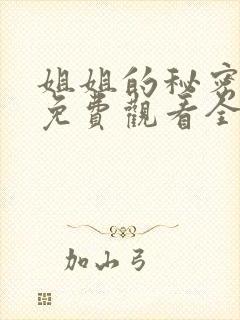 姐姐的秘密
免費觀看全
加山弓